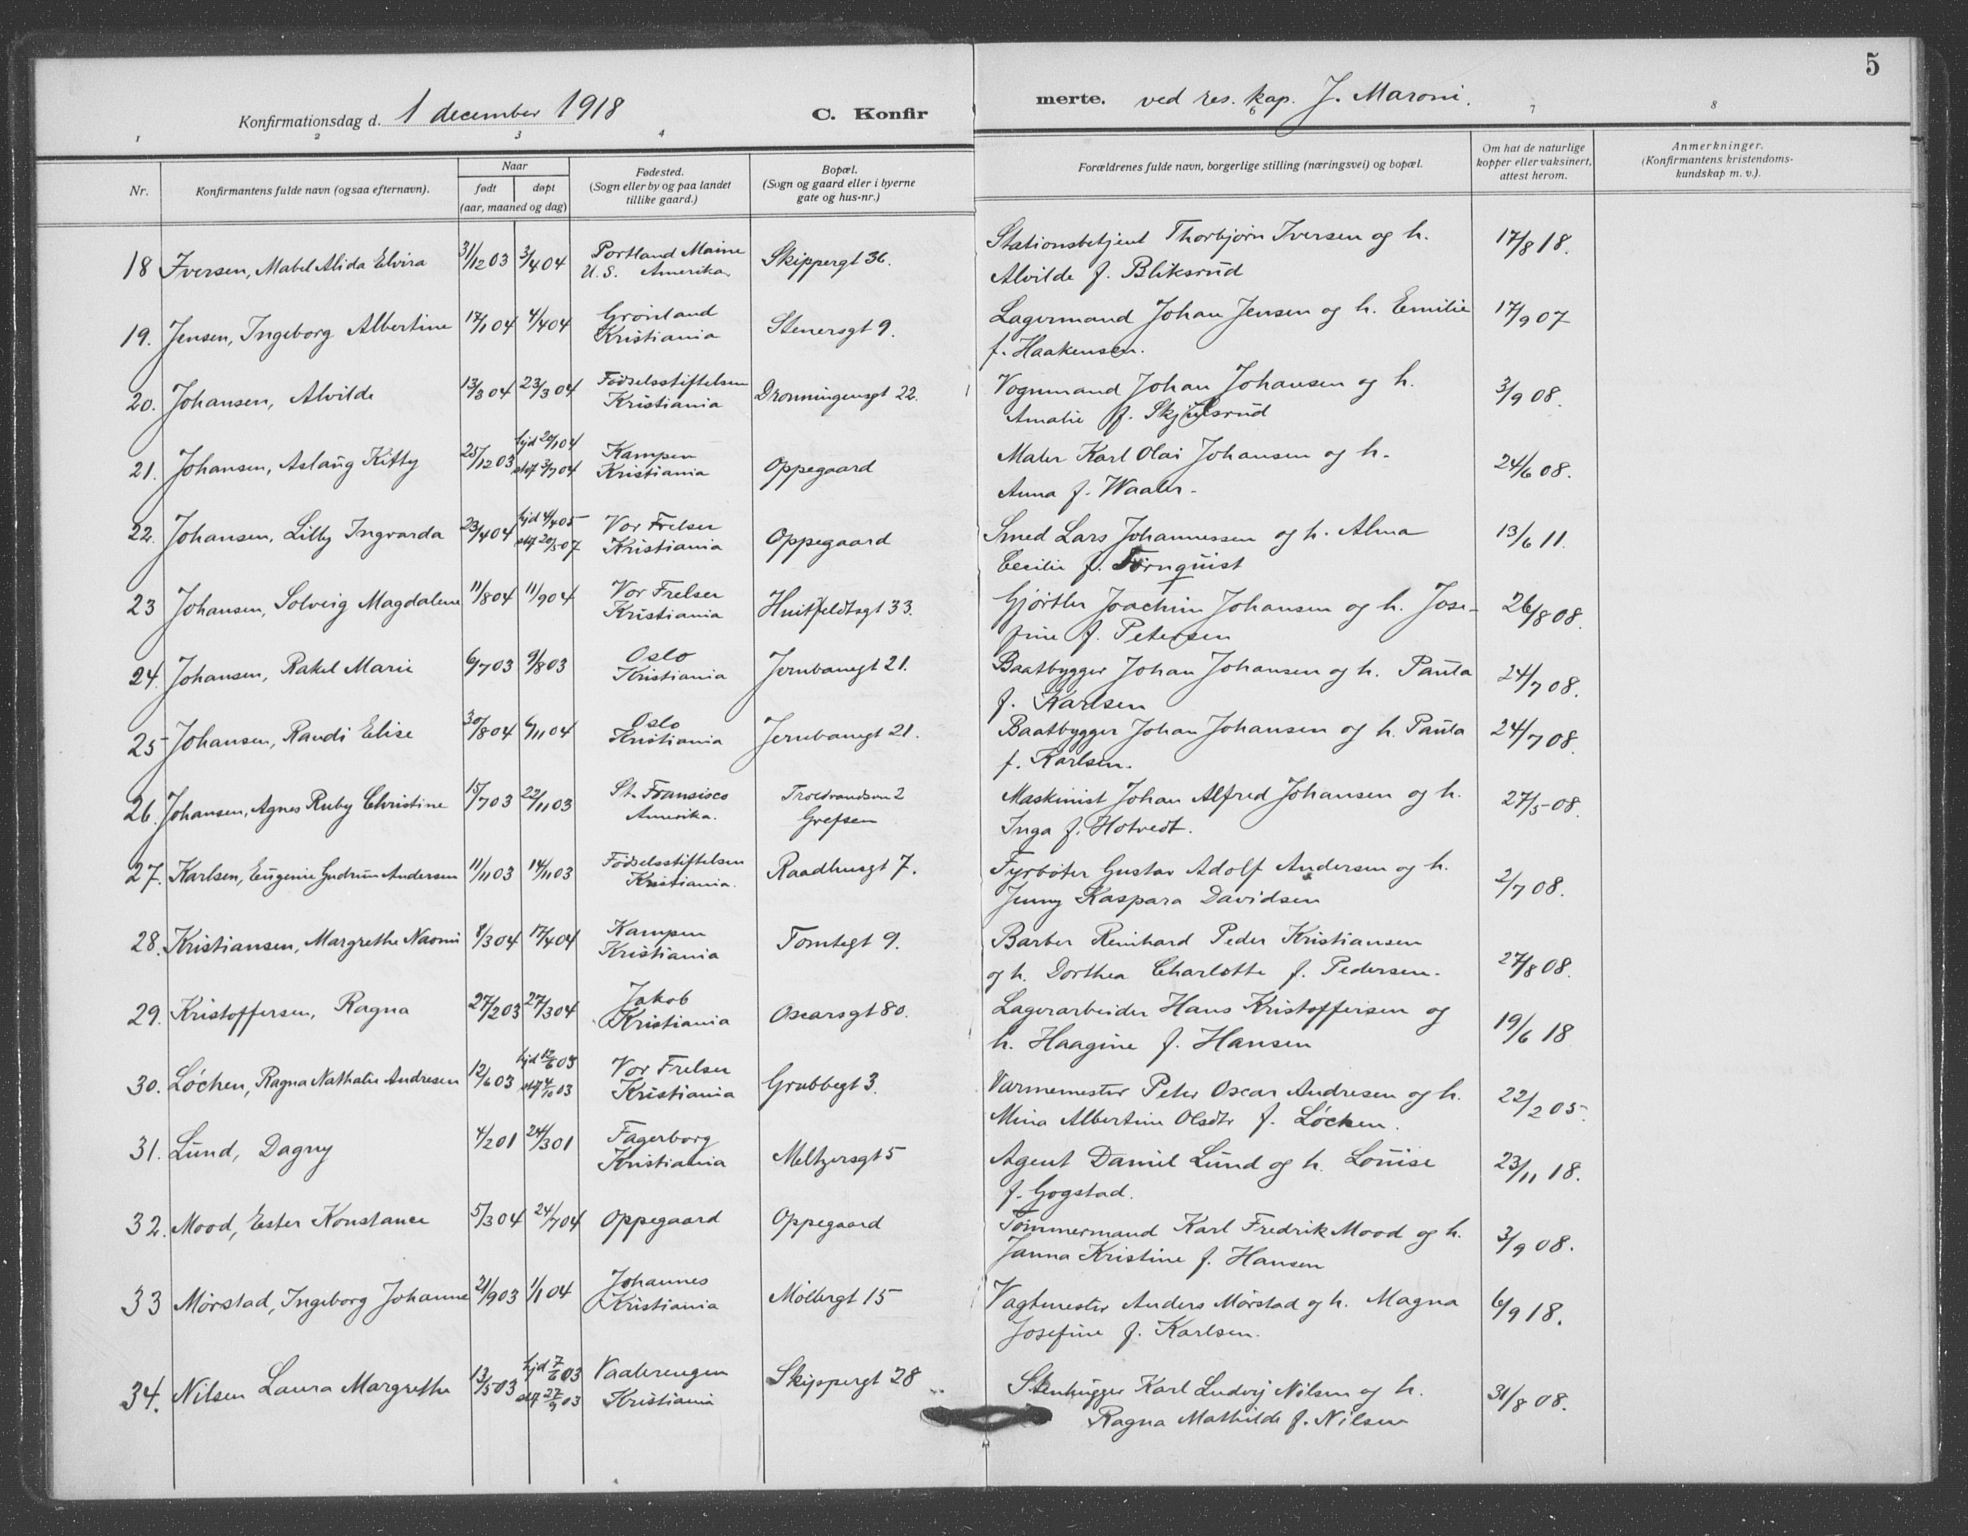 5
Konfirmationsdag d. 1 december 1918 C. Konfir
merte. ved res. kap. J. Maroni.
1 2 3 4 6 7 8
Nr. Konfirmantens fulde navn (ogsaa efternavn).
Naar
født døpt
(aar, maaned og dag)
Fødested.
(Sogn eller by og paa landet
tillike gaard.)
Bopæl.
(Sogn og gaard eller i byerne
gate og hus-nr.)
Forældrenes fulde navn, borgerlige stilling (næringsvei) og bopæl.
Om hat de naturlige
kopper eller vaksinert,
attest herom.
Anmerkninger.
(Konfirmantens kristendoms-
kundskap m. v.).
18 Iversen, Mabel Alida Elvira 31/12 03 3/4 04 Portland Maine
U.S. Amerika Skippergt 36.
Stationsbetjent Thorbjørn Iversen og h.
Alvilde f. Bliksrud 17/8 18.
19. Jensen, Ingeborg Albertine 17/1 04 4/4 04 Grønland
Kristiania Stenersgt 9.
Lagermand Johan Jensen og h. Emilie
f. Haakensen. 17/9 07
20. Johansen, Alvilde 13/3 04 23/3 04 Fødselsstiftelsen
Kristiania Dronningensgt 22.
Vognmand Johan Johansen og h.
Amalie f. Skjælsrud 3/9 08.
21. Johansen, Aslaug Kitty 25/12 03 hjd 20/1 04
stf 3/7 04 Kampen
Kristiania Oppegaard
Maler Karl Olai Johansen og h.
Anna f. Waaler. 24/6 08.
22. Johansen, Lilly Ingvarda 23/4 04 hjd 4/4 05
stf 20/5 07 Vor Frelser
Kristiania Oppegaard
Smed Lars Johannessen og h. Alma
Cecilie f. Törnquist 13/6 11.
23 Johansen, Solveig Magdalene 11/8 04 11/9 04 Vor Frelser
Kristiania Huitfeldtsgt 33.
Gjørtler Joachim Johansen og h. Jose-
fine f. Petersen 26/8 08.
24. Johansen, Rakel Marie 6/7 03 9/8 03 Oslo
Kristiania Jernbanegt 21.
Baatbygger Johan Johansen og h. Paula
f. Karlsen 24/7 08.
25 Johansen, Randi Elise 30/8 04 6/11 04 Oslo
Kristiania Jernbanegt 21.
Baatbygger Johan Johansen og h. Paula
f. Karlsen. 24/7 08.
26. Johansen, Agnes Ruby Christine 15/7 03 22/11 03 St. Fransisco
Amerika. 2
Grefsen
Maskinist Johan Alfred Johansen og h.
Inga f. Hotvedt. 27/5 08.
27. Karlsen, Eugenie Gudrun Andersen 11/11 03 14/11 03 Fødselsstiftelsen
Kristiania. Raadhusgt 7.
Fyrbøter Gustav Adolf Andersen og h.
Jenny Kaspara Davidsen 2/7 08.
28. Kristiansen, Margrethe Naomi 8/3 04 17/4 04 Kampen
Kristiania Tomtegt 9.
Barber Reinhard Peder Kristiansen
og h. Dorthea Charlotte f. Pedersen. 27/8 08.
29. Kristoffersen, Ragna 27/2 03 27/3 04 Jakob
Kristiania Oscarsgt 80.
Lagerarbeider Hans Kristoffersen og
h. Haagine f. Hansen 19/6 18
30. Løchen, Ragna Nathalie Andresen 12/6 03 hjd 12/6 03
stf 4/10 03 Vor Frelser
Kristiania Grubbegt 3.
Varmemester Peter Oscar Andresen og h.
Mina Albertine Olsdtr f. Løchen. 22/2 05.
31. Lund, Dagny 4/2 01 24/3 01 Fagerborg
Kristiania Meltzersgt 5
Agent Daniel Lund og h. Louise
f. Gogstad. 23/11 18.
32. Mood, Ester Konstance 5/3 04 24/7 04 Oppegaard Oppegaard
Tømmermand Karl Fredrik Mood og h.
Janna Kristine f. Hansen 3/9 08.
33 Mørstad, Ingeborg Johanne 21/9 03 1/1 04 Johannes
Kristiania Møllergt 15
Vagtmester Anders Mørstad og h. Magna
Josefine f. Karlsen. 6/9 18.
34. Nilsen Laura Margrethe 13/5 03 hjd 7/6 03
stf 27/9 03 Vaalerengen
Kristiania Skippergt 28
Stenhugger Karl Ludvig Nilsen og h.
Ragna Mathilde f. Nilsen 31/8 08.